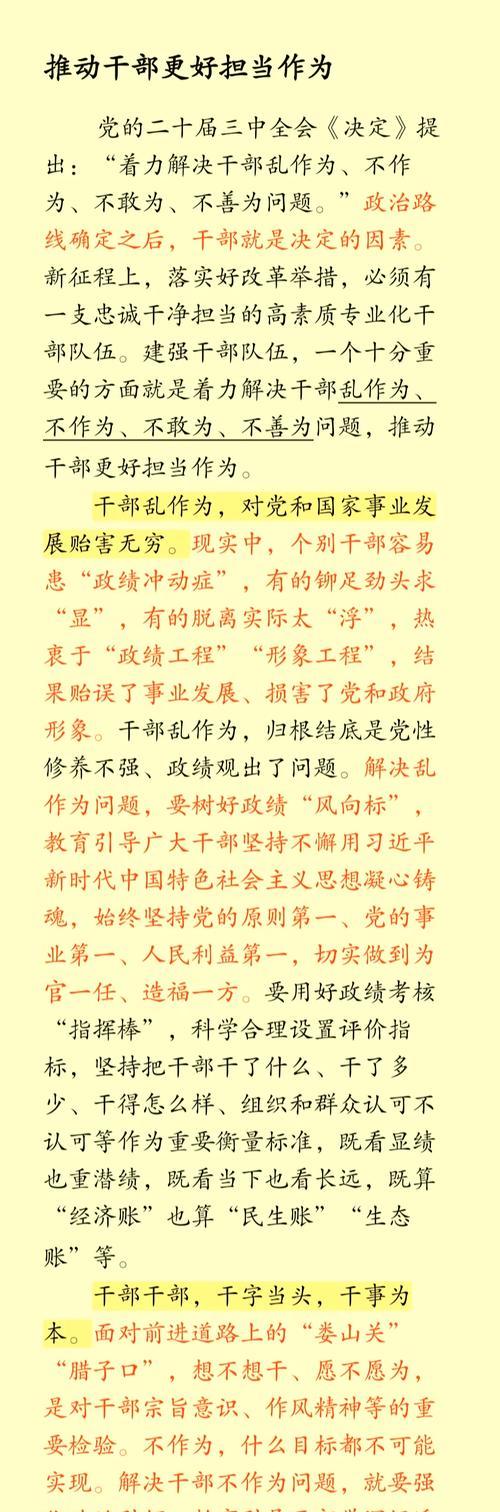 推动干部更好担当作为
党的二十届三中全会《决定》提
出：“着力解决干部乱作为、不作
为、不敢为、不善为问题。”政治路
线确定之后，干部就是决定的因素。
新征程上，落实好改革举措，必须有
一支忠诚干净担当的高素质专业化干
部队伍。建强干部队伍，一个十分重
要的方面就是着力解决干部乱作为、
不作为、不敢为、不善为问题，推动
干部更好担当作为。
干部乱作为，对党和国家事业发
展贻害无穷。现实中，个别干部容易
患“政绩冲动症”，有的铆足劲头求
“显”，有的脱离实际太“浮”，热
衷于“政绩工程”“形象工程”，结
果贻误了事业发展、损害了党和政府
形象。干部乱作为，归根结底是党性
修养不强、政绩观出了问题。解决乱
作为问题，要树好政绩“风向标”，
教育引导广大干部坚持不懈用习近平
新时代中国特色社会主义思想凝心铸
魂，始终坚持党的原则第一、党的事
业第一、人民利益第一，切实做到为
官一任、造福一方。要用好政绩考核
“指挥棒”，科学合理设置评价指
标，坚持把干部干了什么、干了多
少、干得怎么样、组织和群众认可不
认可等作为重要衡量标准，既看显绩
也重潜绩，既看当下也看长远，既算
“经济账”也算“民生账”“生态
账”等。
干部干部，干字当头，干事为
本。面对前进道路上的“娄山关”
“腊子口”，想不想干、愿不愿为，
是对干部宗旨意识、作风精神等的重
要检验。不作为，什么目标都不可能
实现。解决干部不作为问题，就要强